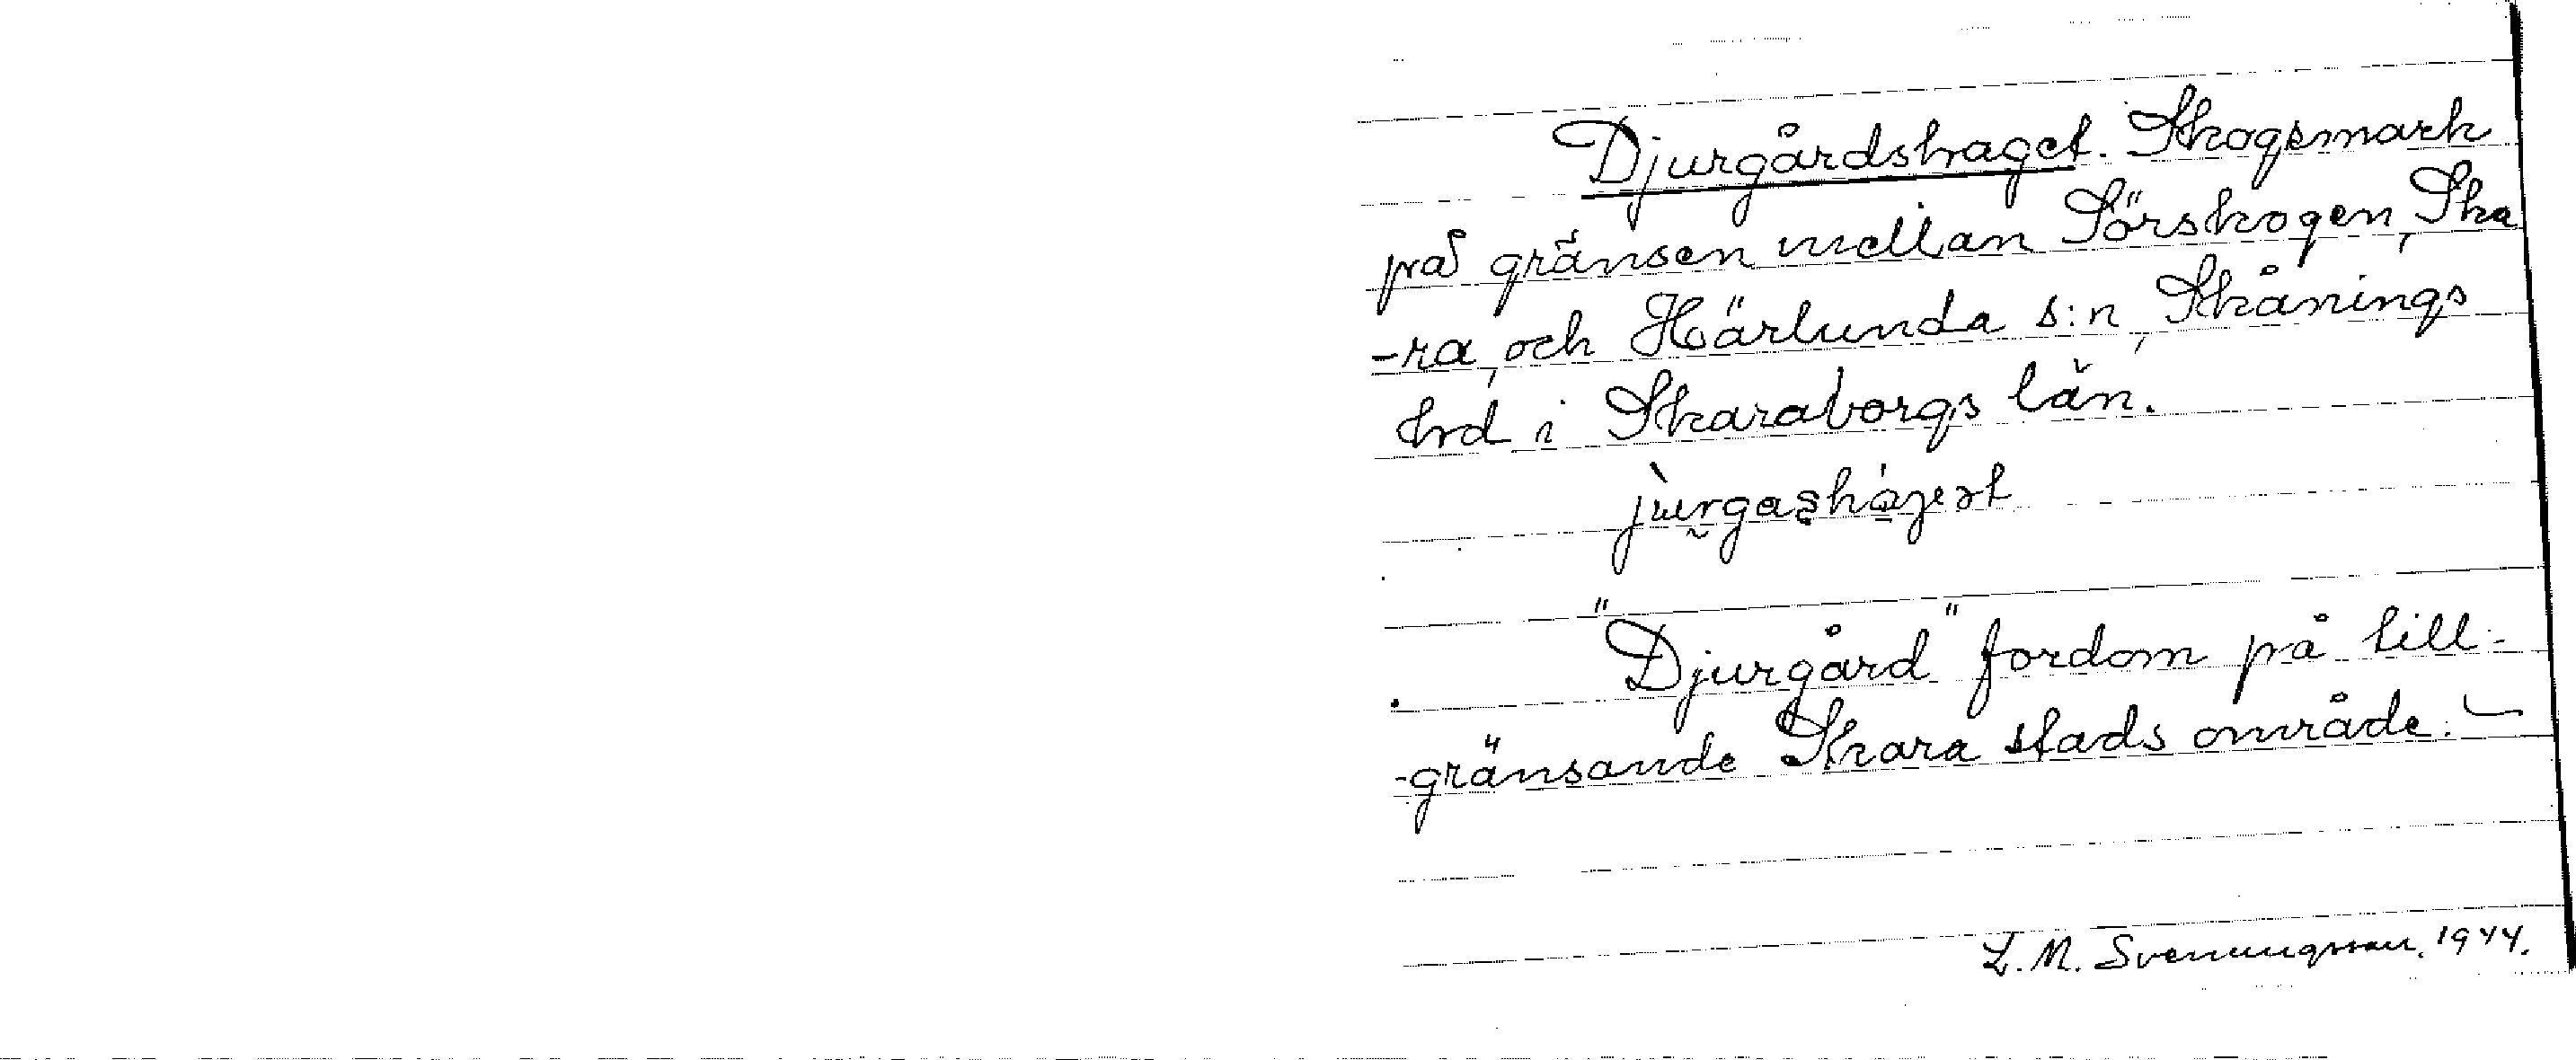 Djurgårdshaget. Skogsmark
på gränsen mellan Sörskogen, Ska
-ra, och Härlunda s:n, Skånings
hrd i Skaraborgs län.
"Djurgård" fordom på till-
-gränsande Skara stads område. —
L. M. Svenungsson. 1944.